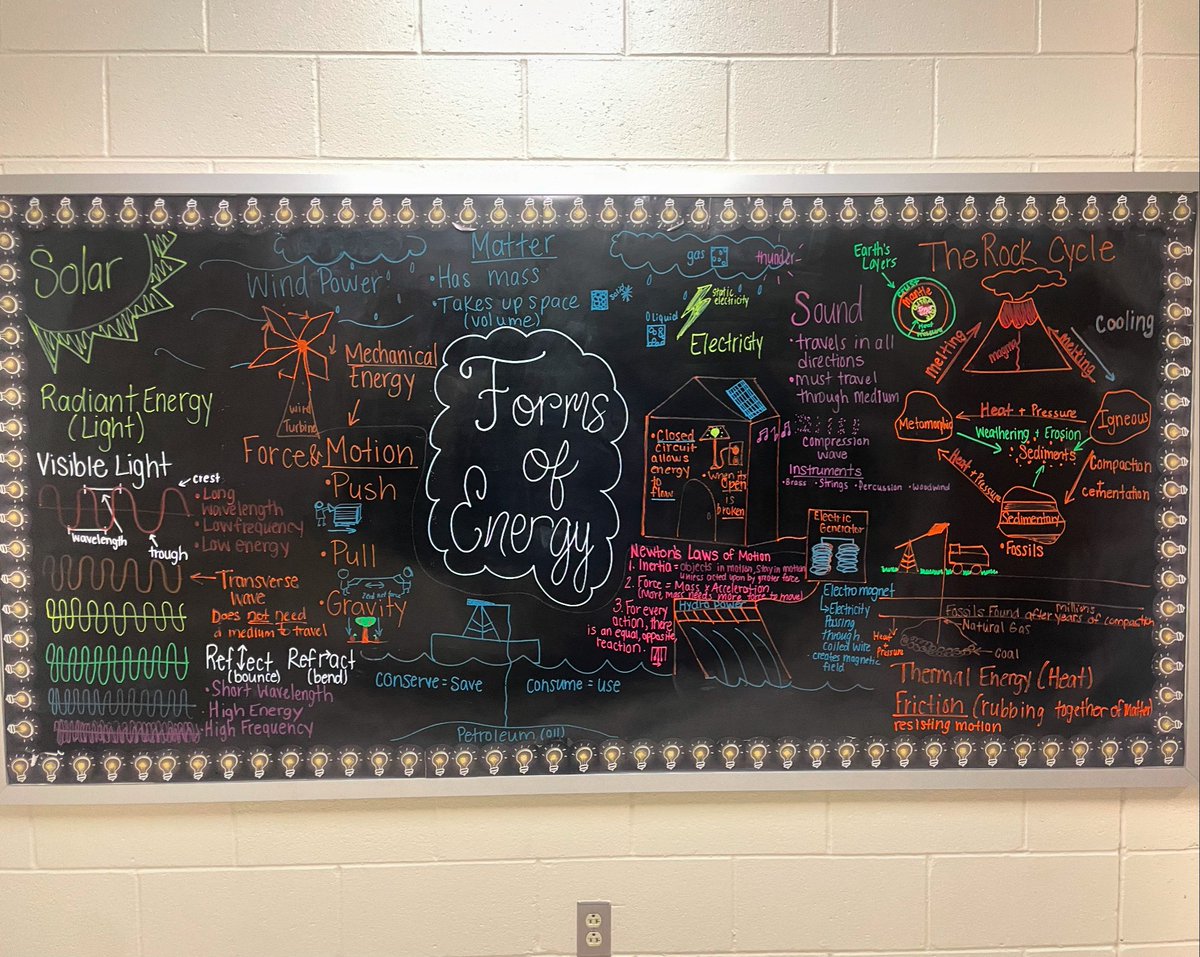 Solar
Radiant Energy
(Light)
Visible Light
crest
wavelength
trough
• Long
wavelength
• Low frequency
• Low energy
Transverse
wave
Does not need
a medium to travel
Reflect
(bounce)
Refract
(bend)
• Short Wavelength
• High Energy
• High Frequency
Wind Power
Wind
Turbine
Mechanical
Energy
Force & Motion
• Push
• Pull
• Gravity
Matter
• Has mass
• Takes up space
(volume)
Solid
Liquid
gas
thunder
static
electricity
Electricity
Forms
of
Energy
conserve = save
consume = use
Petroleum (oil)
• Closed
circuit
allows
energy
to flow
• When its
open
is
broken
Sound
• travels in all
directions
• must travel
through medium
compression
wave
Instruments
• Brass • Strings • Percussion • Woodwind
Newton's Laws of Motion
1. Inertia = objects in motion, stay in motion
unless acted upon by greater force.
2. Force = Mass x Acceleration
(More mass needs more force to move)
3. For every
action, there
is an equal, opposite
reaction.
Hydro Power
Electric
Generator
Electro magnet
Electricity
Passing
through
coiled wire
creates magnetic
field
Earth's
Layers
Crust
Mantle
The Rock Cycle
melting
magma
melting
Cooling
Metamorphic
Heat + Pressure
Igneous
Weathering + Erosion
Sediments
Heat + Pressure
Compaction
+
cementation
Sedimentary
• Fossils
Fossils Found after years of compaction
millions
Natural Gas
Heat
+
Pressure
coal
Thermal Energy (Heat)
Friction (rubbing together of matter)
resisting motion